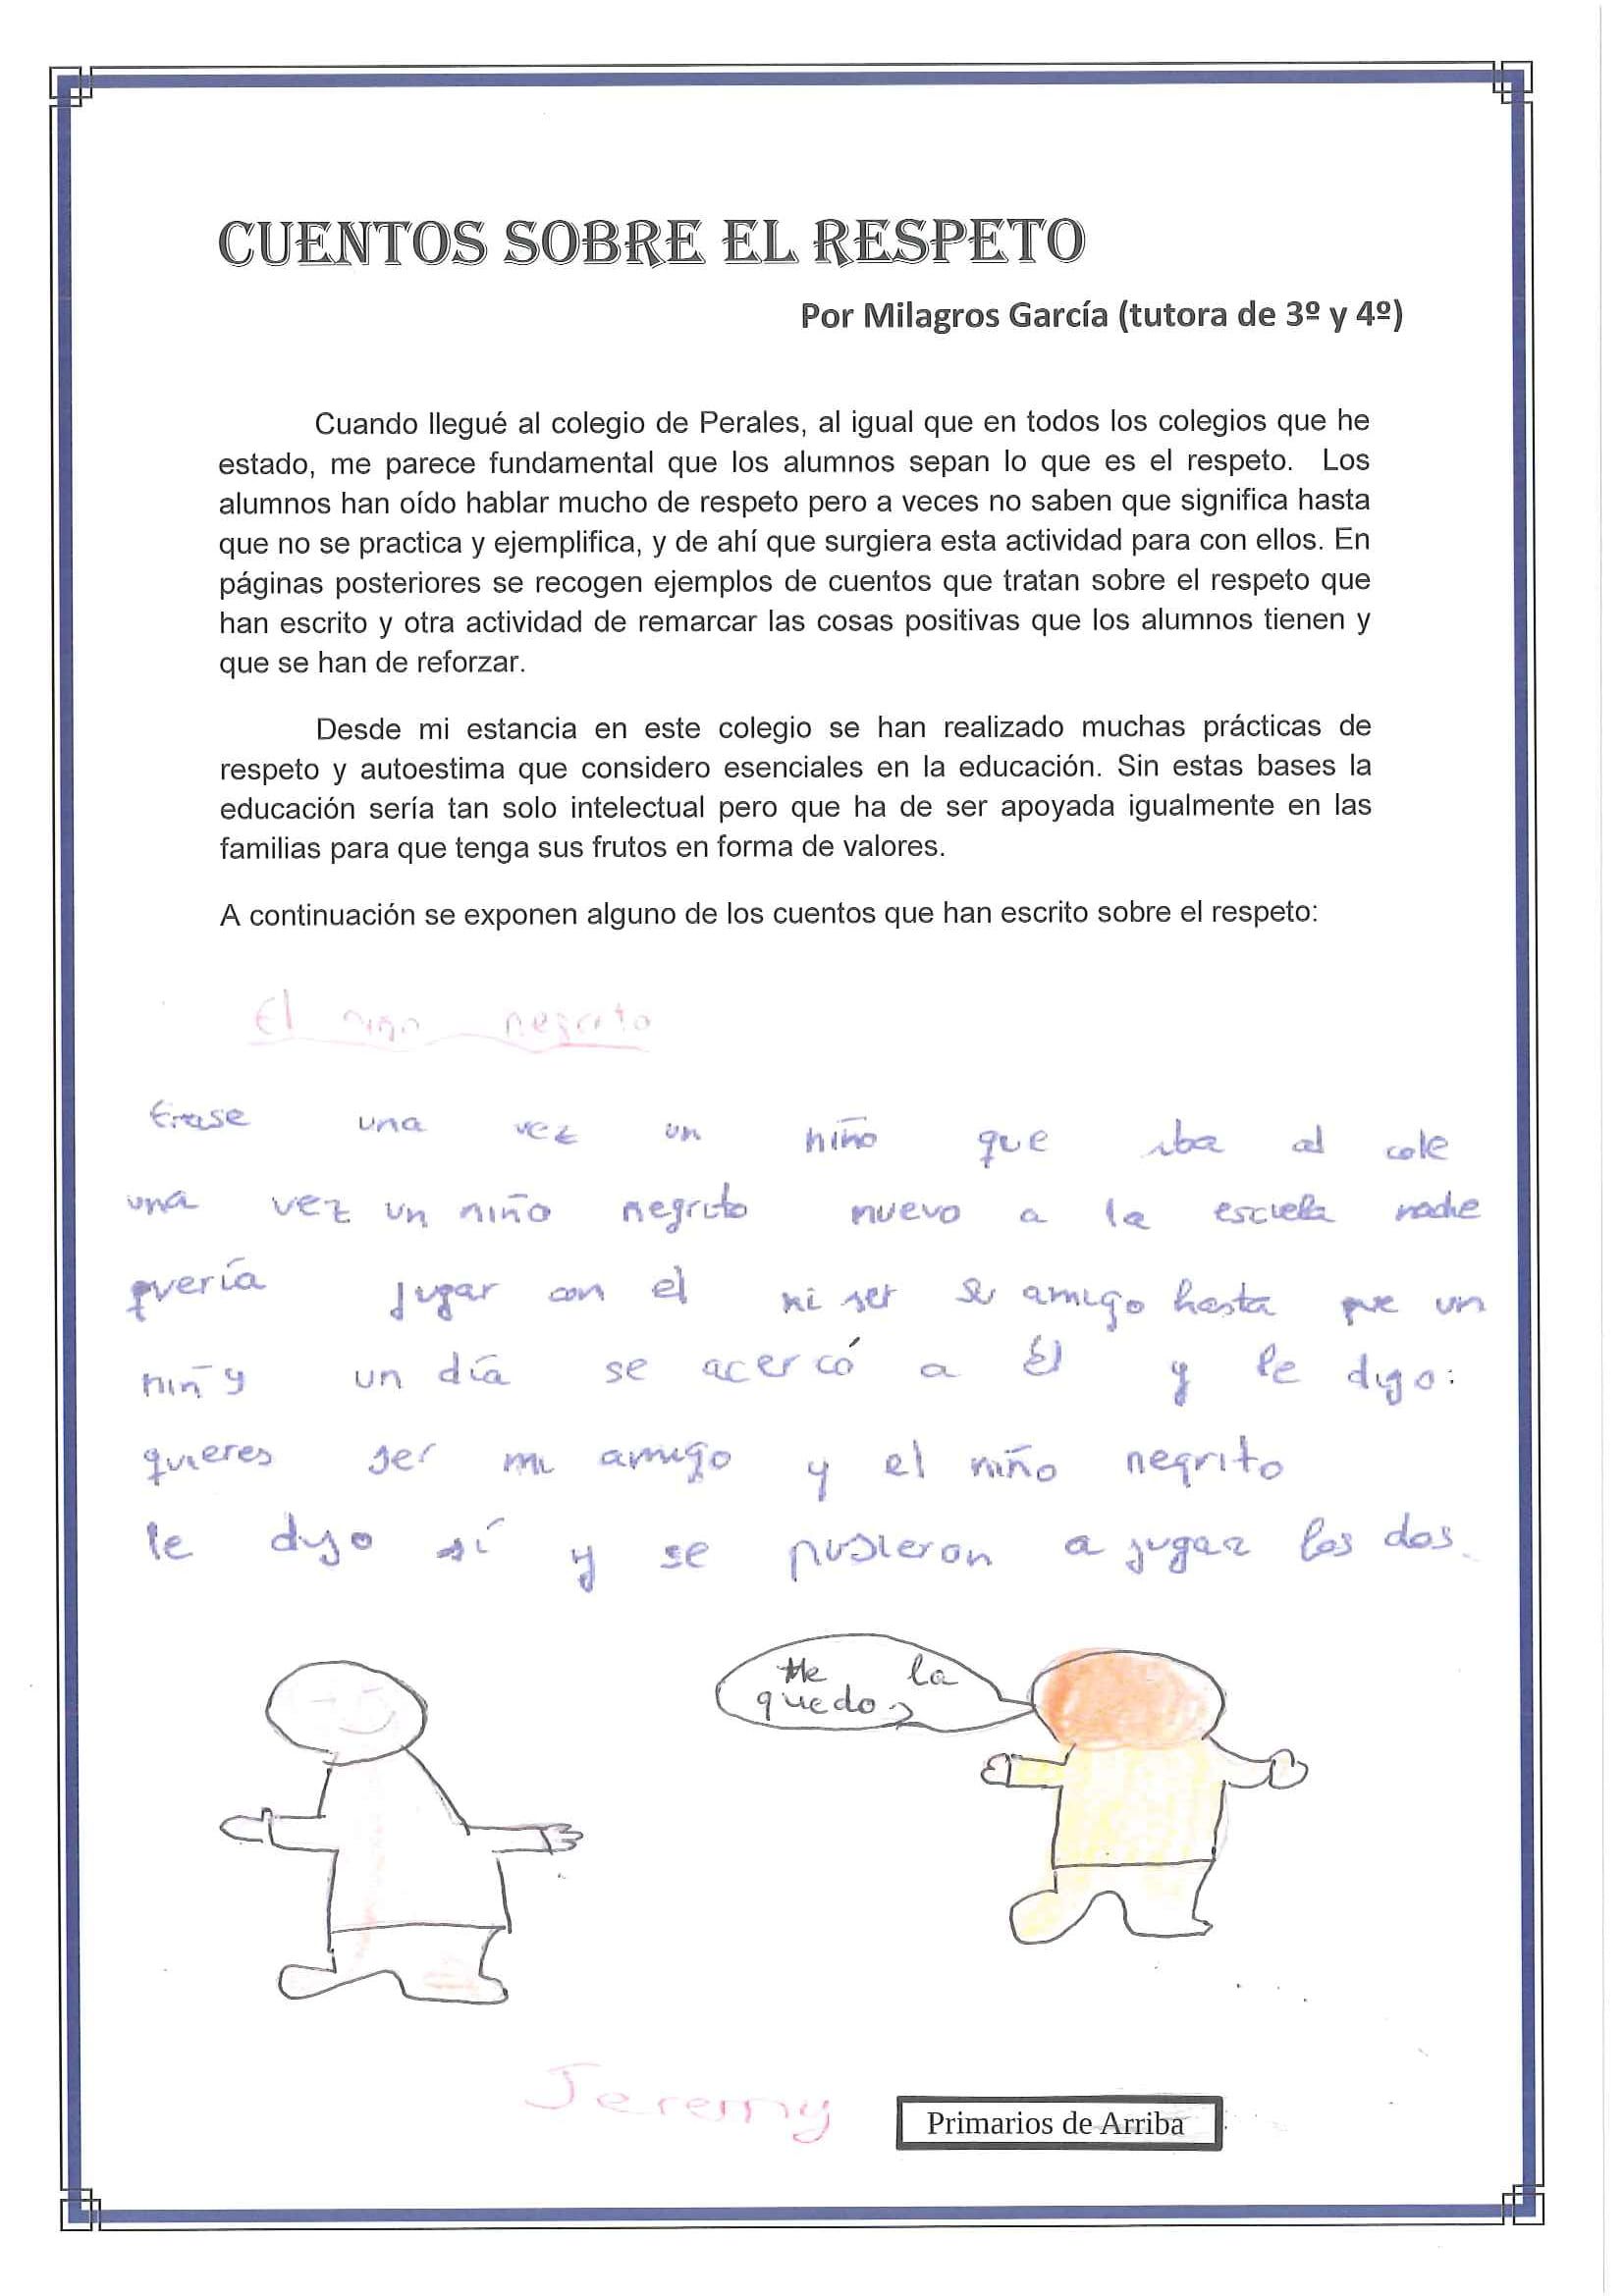 CUENTOS SOBRE EL RESPETO
Por Milagros García (tutora de 3º y 4º)
Cuando llegué al colegio de Perales, al igual que en todos los colegios que he
estado, me parece fundamental que los alumnos sepan lo que es el respeto. Los
alumnos han oído hablar mucho de respeto pero a veces no saben que significa hasta
que no se practica y ejemplifica, y de ahí que surgiera esta actividad para con ellos. En
páginas posteriores se recogen ejemplos de cuentos que tratan sobre el respeto que
han escrito y otra actividad de remarcar las cosas positivas que los alumnos tienen y
que se han de reforzar.
Desde mi estancia en este colegio se han realizado muchas prácticas de
respeto y autoestima que considero esenciales en la educación. Sin estas bases la
educación sería tan solo intelectual pero que ha de ser apoyada igualmente en las
familias para que tenga sus frutos en forma de valores.
A continuación se exponen alguno de los cuentos que han escrito sobre el respeto:
El niño negrito
Erase una vez un niño que iba al cole
una vez un niño negrito nuevo a la escuela nadie
quería jugar con el ni ser su amigo hasta que un
niñ y un día se acercó a Él y le digo:
quieres ser mi amigo y el niño negrito
le dijo sí y se pusieron a jugar los dos.
Me la
quedo
Jeremy
Primarios de Arriba